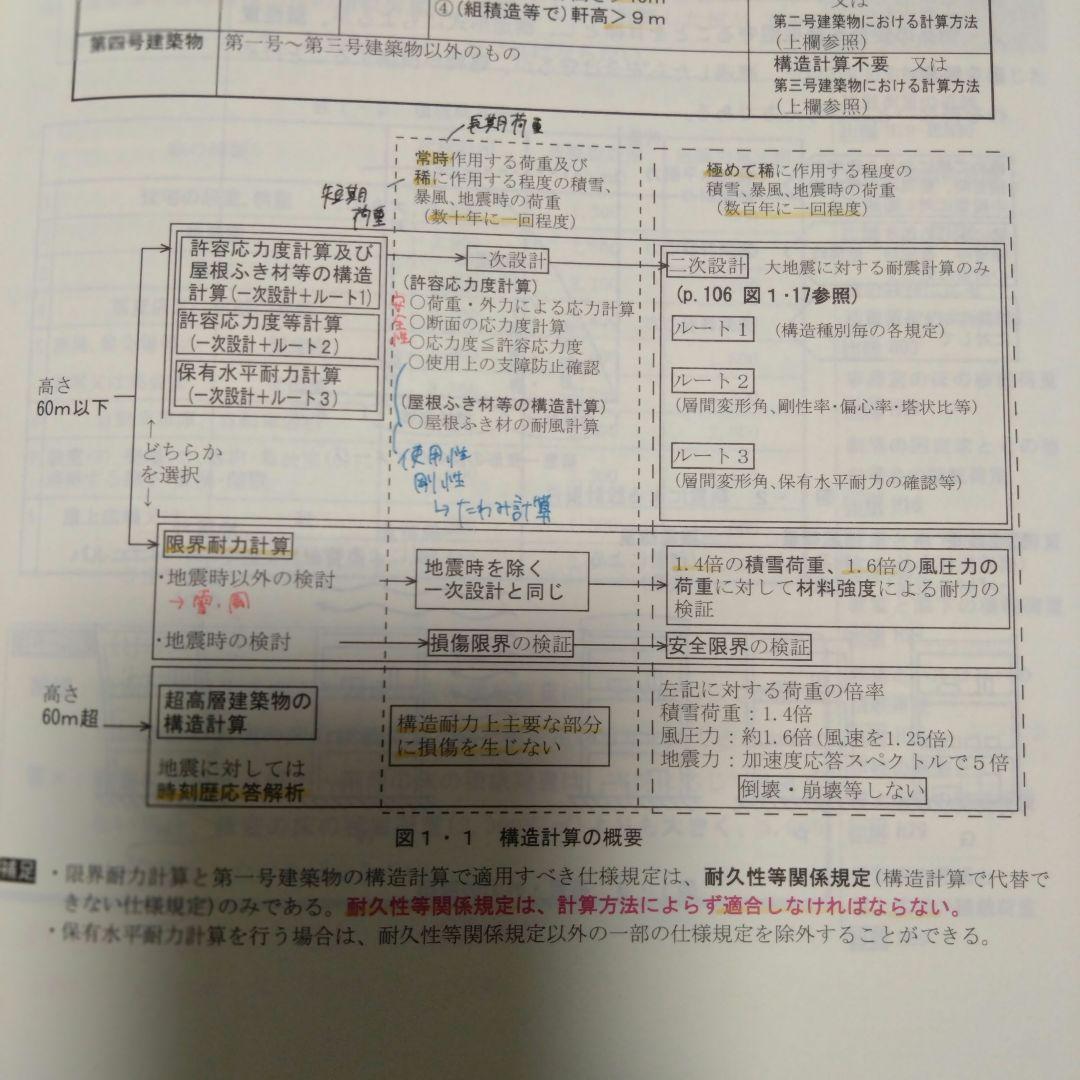 ④(組積造等で)軒高＞９ｍ
又は
第二号建築物における計算方法
(上欄参照)
第四号建築物
第一号～第三号建築物以外のもの
構造計算不要　又は
第三号建築物における計算方法
(上欄参照)
長期荷重
常時作用する荷重及び
稀に作用する程度の積雪、
暴風、地震時の荷重
(数十年に一回程度)
短期
荷重
極めて稀に作用する程度の
積雪、暴風、地震時の荷重
(数百年に一回程度)
高さ
60ｍ以下
許容応力度計算及び
屋根ふき材等の構造
計算(一次設計＋ルート1)
許容応力度等計算
(一次設計＋ルート2)
保有水平耐力計算
(一次設計＋ルート3)
↑
どちらか
を選択
↓
一次設計
(許容応力度計算)
○荷重・外力による応力計算
○断面の応力度計算
○応力度≦許容応力度
○使用上の支障防止確認
安全性
(屋根ふき材等の構造計算)
○屋根ふき材の耐風計算
使用性
剛性
↳たわみ計算
二次設計　大地震に対する耐震計算のみ
(p.106 図１・17参照)
ルート１　(構造種別毎の各規定)
ルート２
(層間変形角、剛性率・偏心率・塔状比等)
ルート３
(層間変形角、保有水平耐力の確認等)
限界耐力計算
・地震時以外の検討
→雪・風
・地震時の検討
地震時を除く
一次設計と同じ
損傷限界の検証
1.4倍の積雪荷重、1.6倍の風圧力の
荷重に対して材料強度による耐力の
検証
安全限界の検証
高さ
60ｍ超
超高層建築物の
構造計算
地震に対しては
時刻歴応答解析
構造耐力上主要な部分
に損傷を生じない
左記に対する荷重の倍率
積雪荷重：1.4倍
風圧力：約1.6倍(風速を1.25倍)
地震力：加速度応答スペクトルで５倍
倒壊・崩壊等しない
図１・１　構造計算の概要
補足
・限界耐力計算と第一号建築物の構造計算で適用すべき仕様規定は、耐久性等関係規定(構造計算で代替で
きない仕様規定)のみである。耐久性等関係規定は、計算方法によらず適合しなければならない。
・保有水平耐力計算を行う場合は、耐久性等関係規定以外の一部の仕様規定を除外することができる。